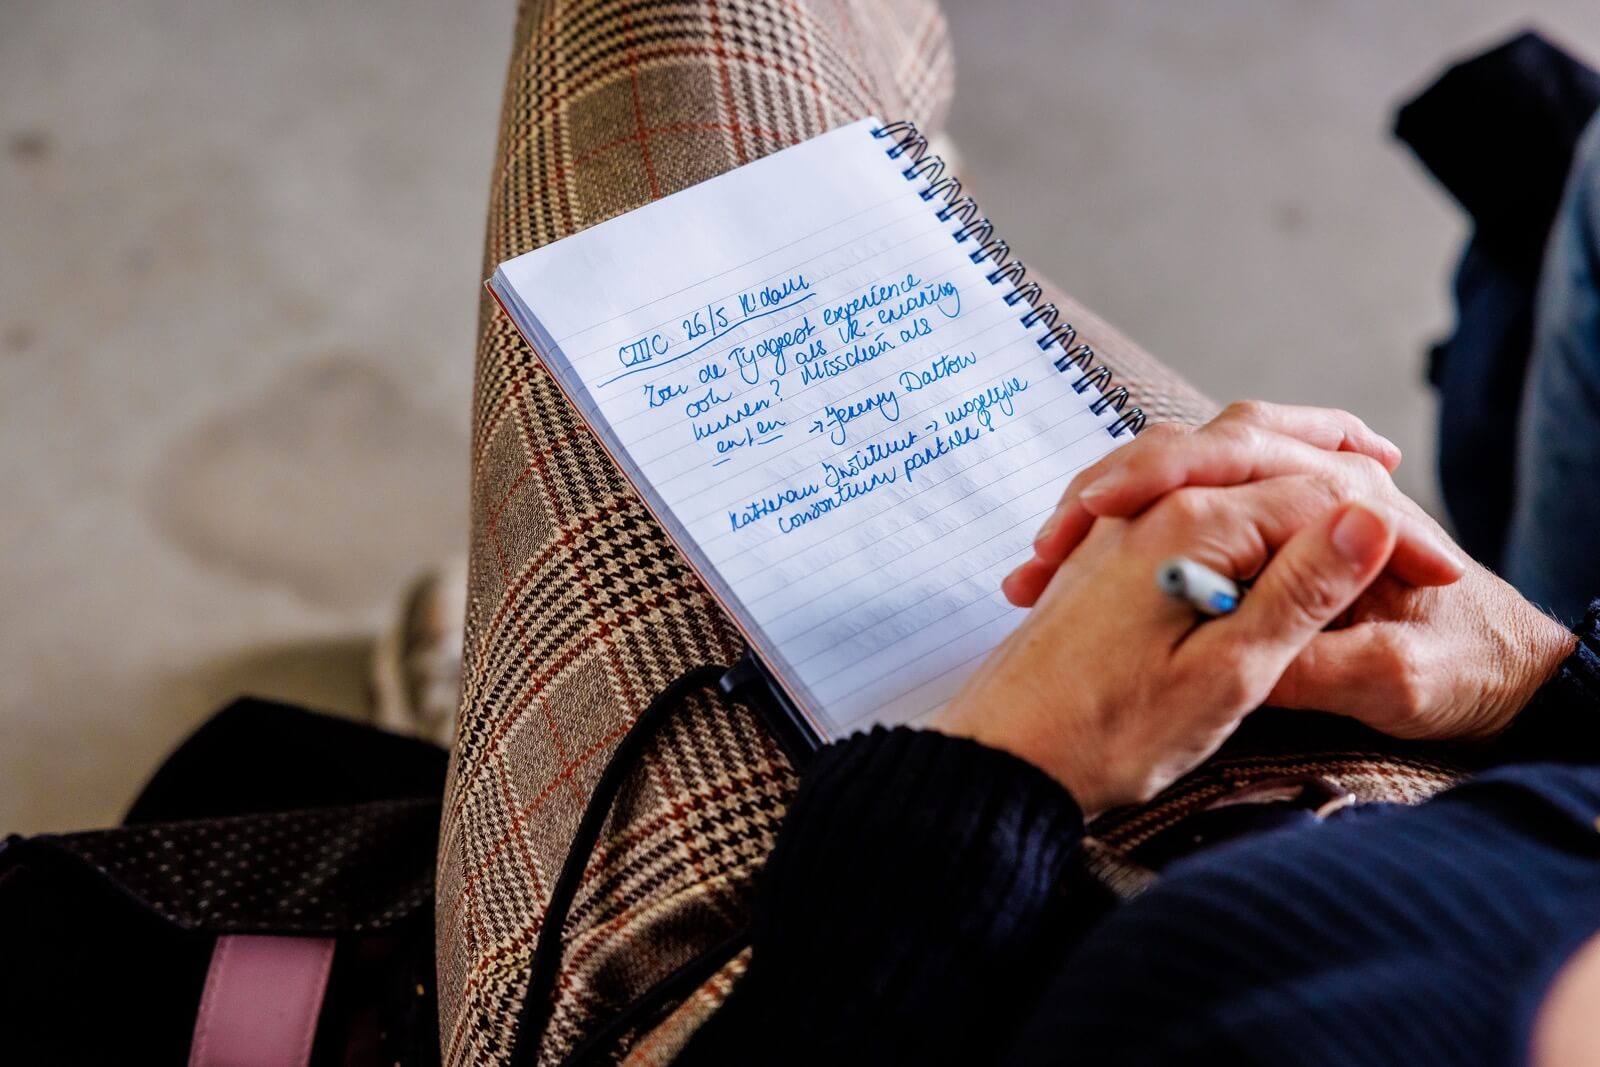 CIIIC 26/5 R'dam
Zou de Tijdgeest experience
ook als VR-ervaring
kunnen? Misschien als
en/en → Jeremy Dalton
Rathenau Instituut → mogelijke
consortium partner?